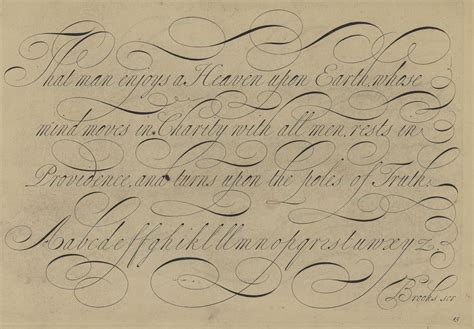 That man enjoys a Heaven upon Earth, whose
mind moves in Charity with all men, rests in
Providence, and turns upon the poles of Truth.
Aabcdeffghiklllmnopqrestuwxyz
Brooks scr.